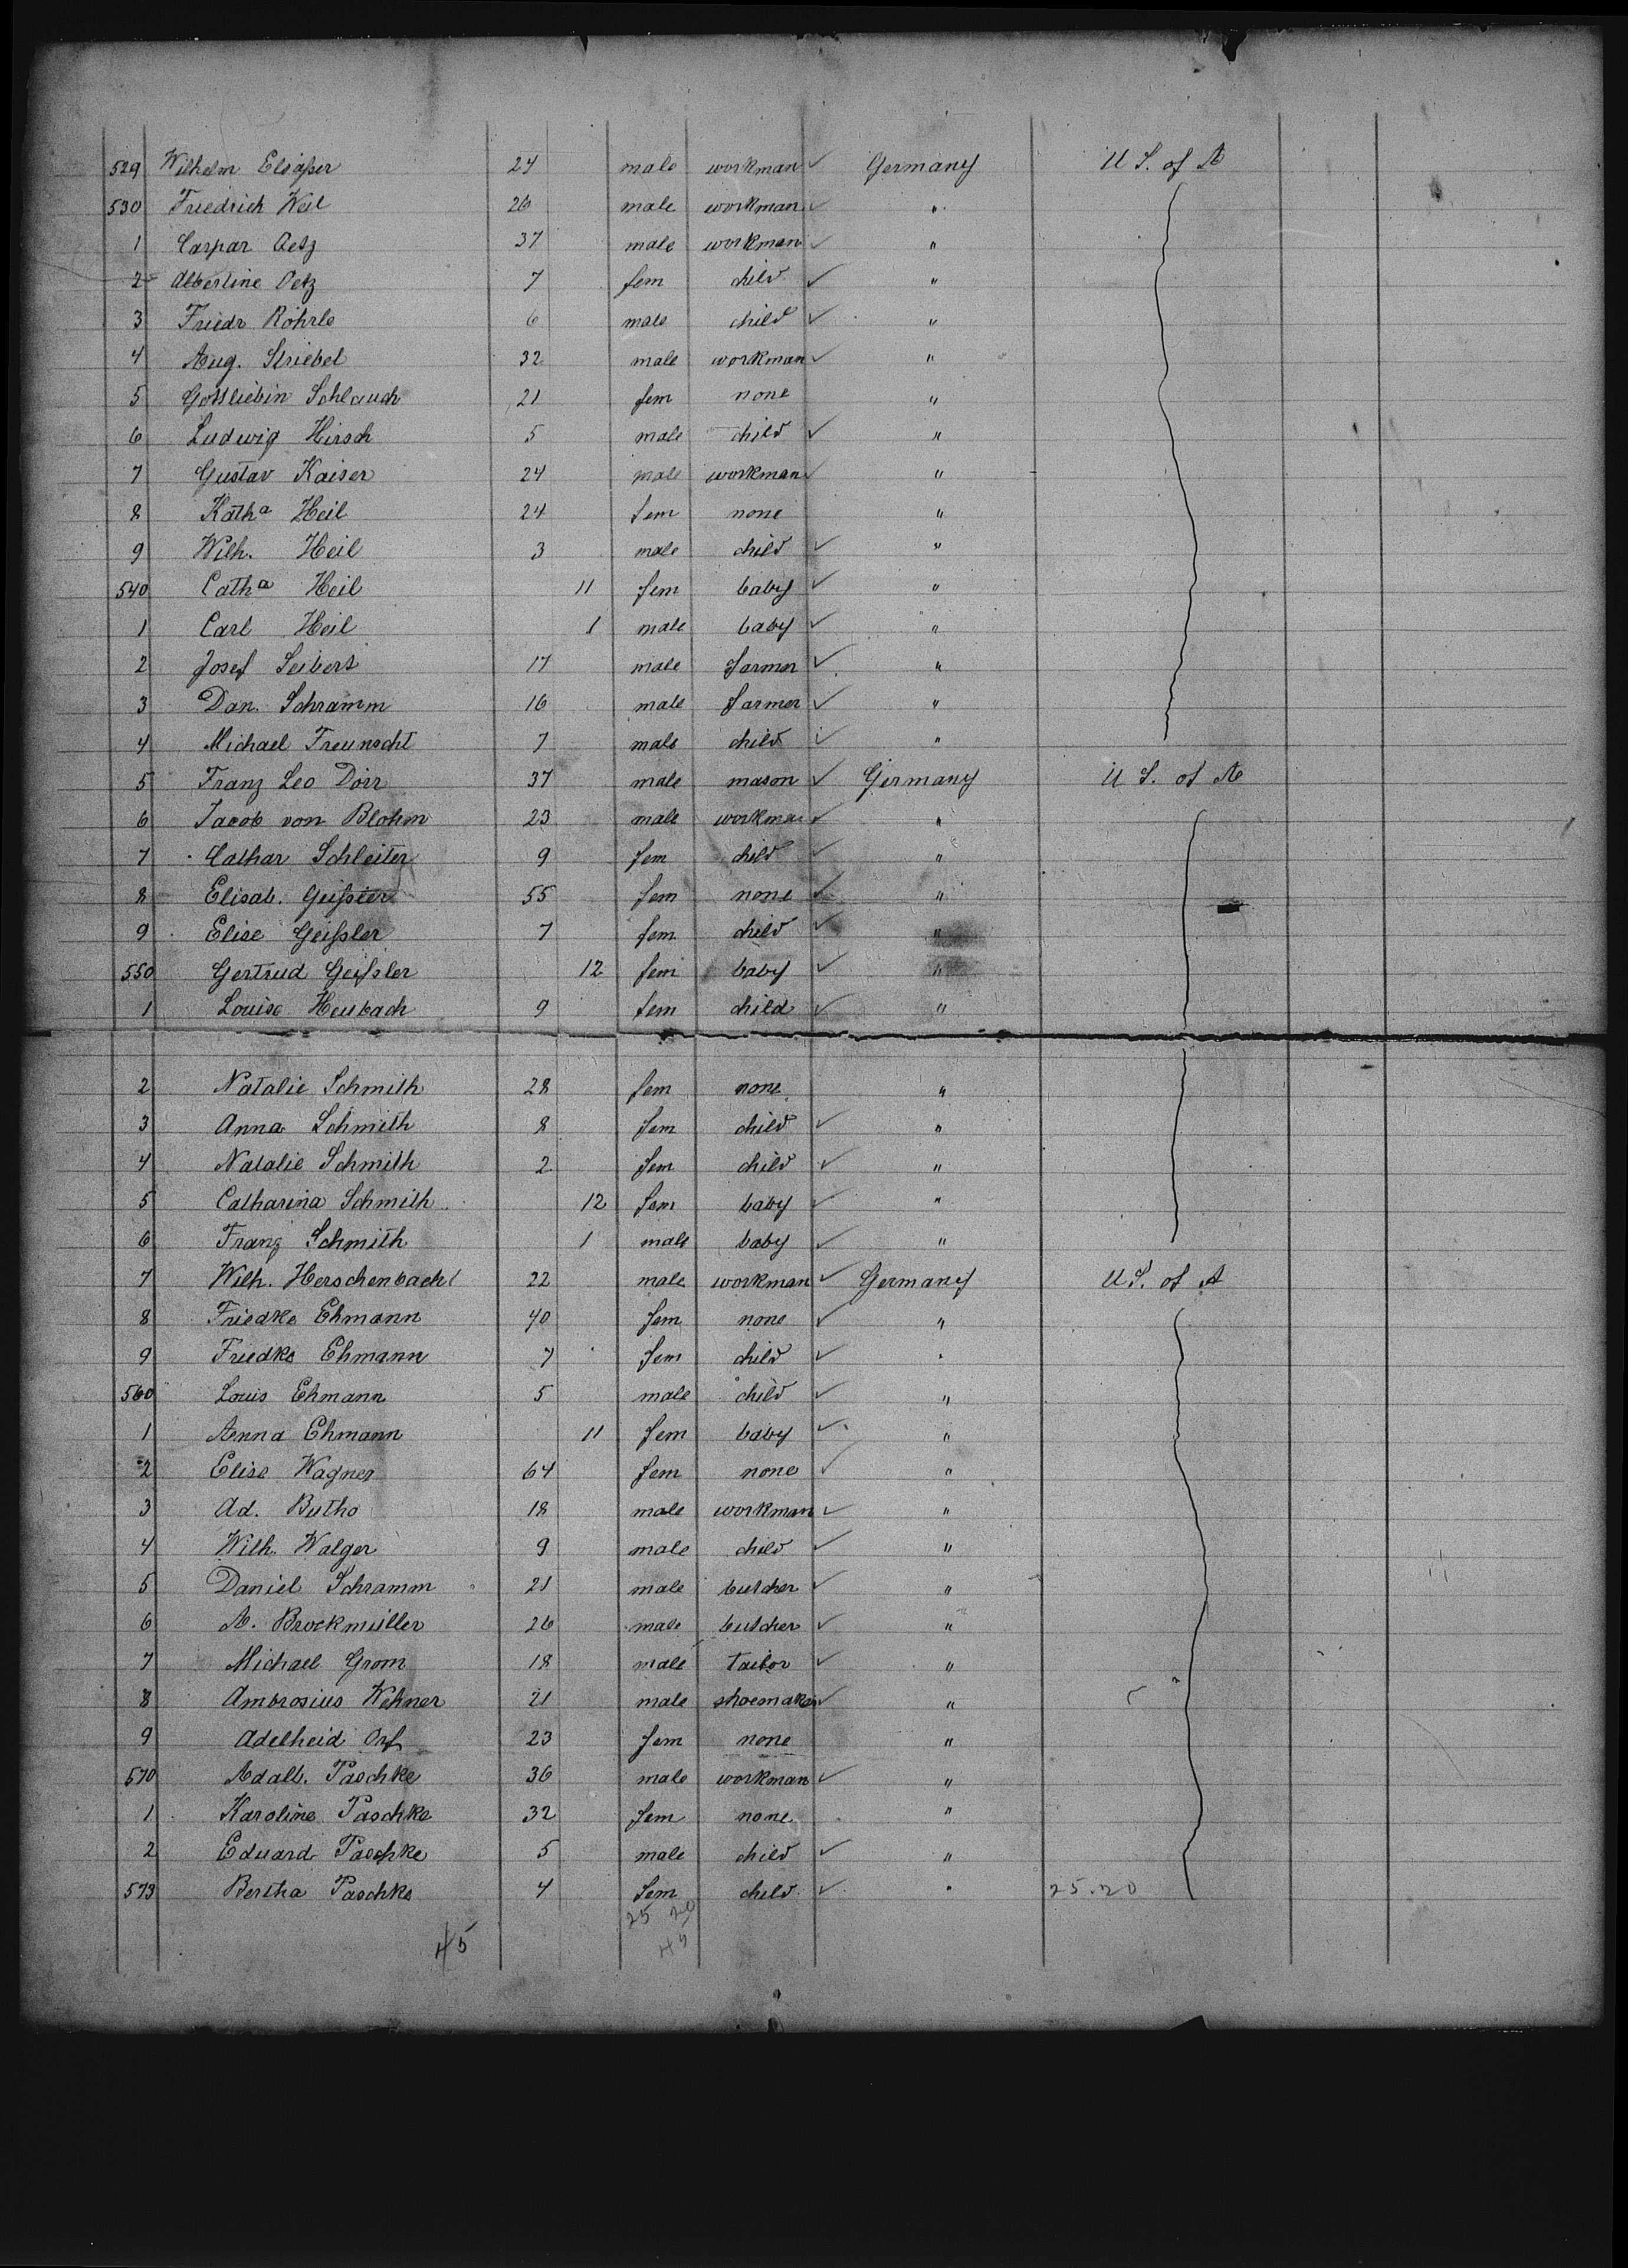 529 Wilhelm Elsäßer 24 male workman ✓ Germany U S. of A
530 Friedrich Weil 26 male workman ✓ "
1 Caspar Oetz 37 male workman ✓ "
2 Albertine Oetz 7 fem child ✓ "
3 Friedr Röhrle 6 male child ✓ "
4 Aug. Striebel 32 male workman ✓ "
5 Gottliebin Schlauch 21 fem none "
6 Ludwig Hirsch 5 male child ✓ "
7 Gustav Kaiser 24 male workman ✓ "
8 Kath^a Heil 24 fem none "
9 Wilh. Heil 3 male child ✓ "
540 Cath^a Heil 11 fem baby ✓ "
1 Carl Heil 1 male baby ✓ "
2 Josef Seibert 17 male farmer ✓ "
3 Dan. Schramm 16 male farmer ✓ "
4 Michael 7 male child ✓ "
5 Franz Leo Dörr 37 male mason ✓ Germany U S. of A
6 Jacob von Blohm 23 male workman ✓ "
7 Cathar Schleiter 9 fem child ✓ "
8 Elisab. Geißler 55 fem none ✓ "
9 Elise Geißler 7 fem child ✓ "
550 Gertrud Geißler 12 fem baby ✓ "
1 Louise Heubach 9 fem child ✓ "
2 Natalie Schmith 28 fem none "
3 Anna Schmith 8 fem child ✓ "
4 Natalie Schmith 2 fem child ✓ "
5 Catharina Schmith 12 fem baby ✓ "
6 Franz Schmith 1 male baby ✓ "
7 Wilh. Herschenbach 22 male workman ✓ Germany U S. of A
8 Friedke Ehmann 40 fem none ✓ "
9 Friedke Ehmann 7 fem child ✓ "
560 Louis Ehmann 5 male child ✓ "
1 Anna Ehmann 11 fem baby ✓ "
2 Elise Wagner 64 fem none ✓ "
3 Ad. Butho 18 male workman ✓ "
4 Wilh. Walger 9 male child ✓ "
5 Daniel Schramm 21 male butcher ✓ "
6 A. Brockmüller 26 male butcher ✓ "
7 Michael Grom 18 male tailor ✓ "
8 Ambrosius Wehner 21 male shoemaker ✓ "
9 Adelheid Orf 23 fem none "
570 Adalb. Paschke 36 male workman ✓ "
1 Karoline Paschke 32 fem none "
2 Eduard Paschke 5 male child ✓ "
573 Bertha Paschke 4 fem child ✓ " 25.20
25 20
45 45